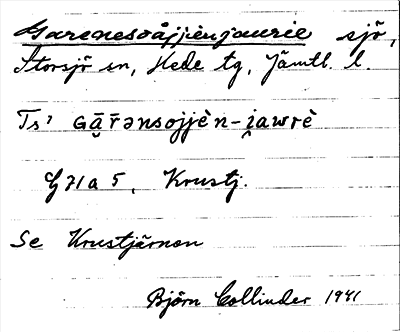 Garenesoåjjienjaurie sjö,
Storsjö sn, Hede tg, Jämtl. l.
Ts' Gā̮r̄ənsojjèn-i̯awrè
G 71 a 5, Krustj.
Se Krustjärnen
Björn Collinder 1941